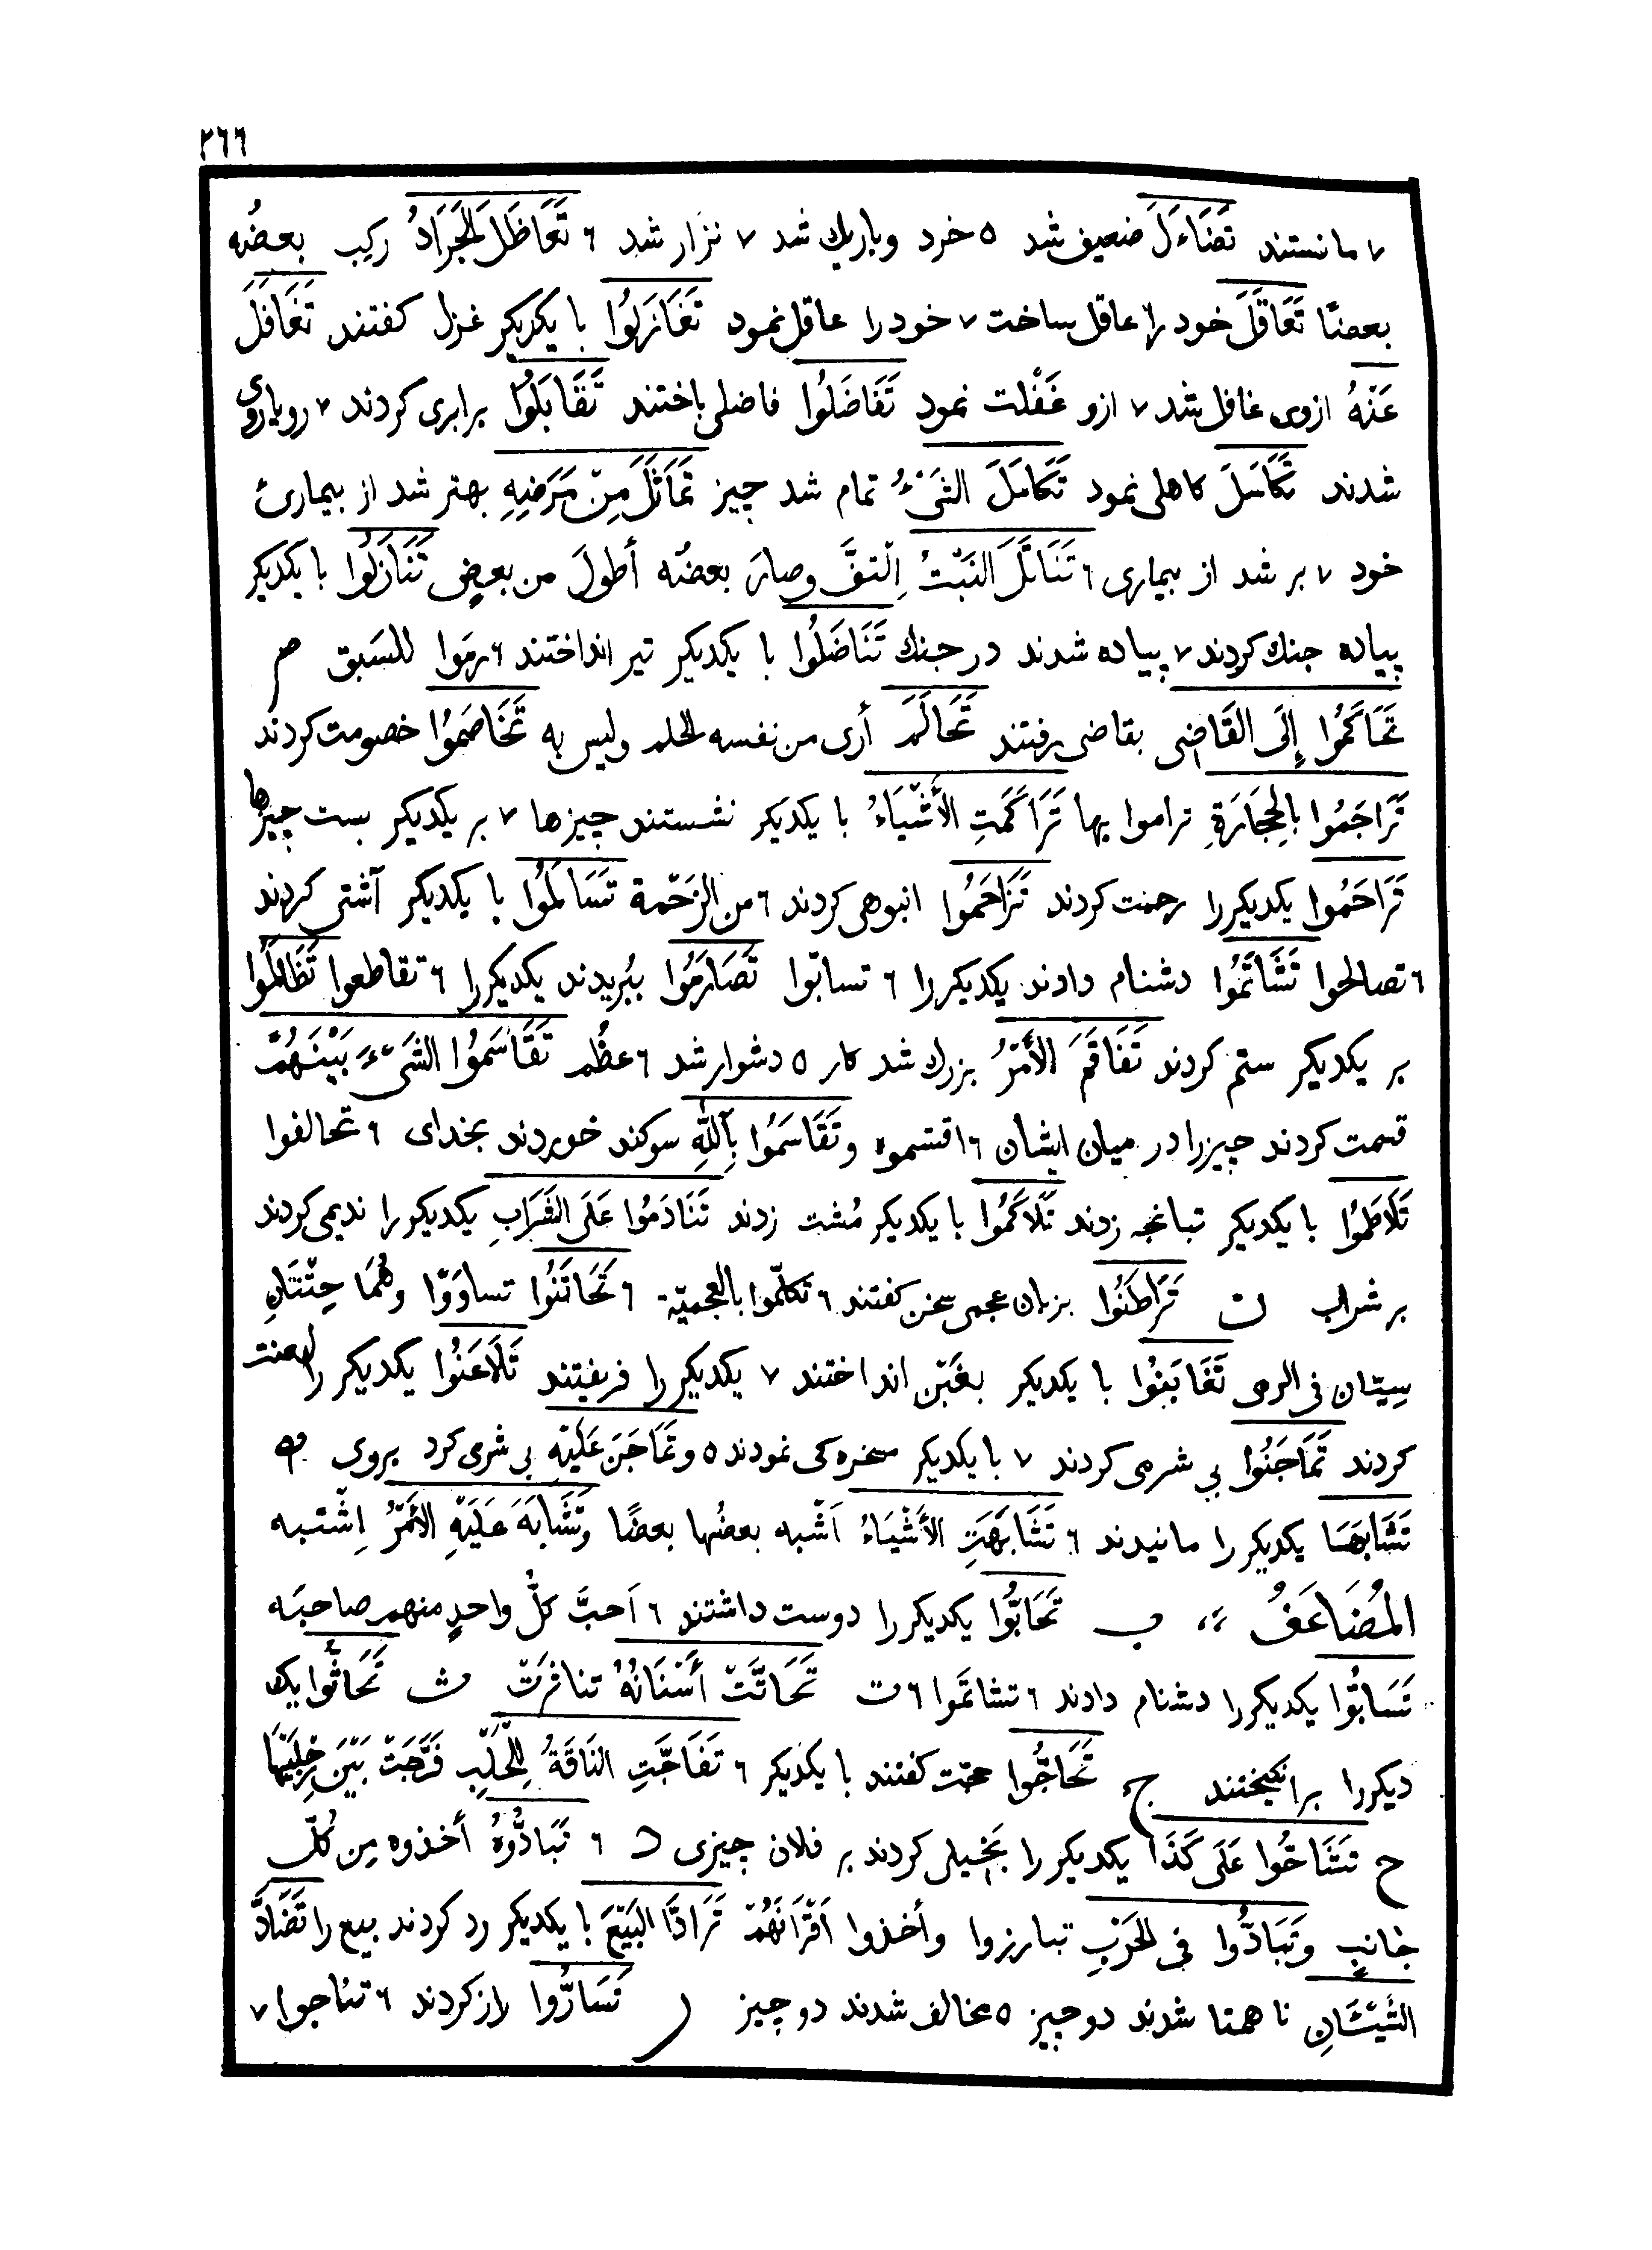 ٢٦٦
٧ مانستند تَضَاءَلَ ضعیف شد ٥ خرد وباریك شد ٧ نزار شد ٦ تَعَاظَلَ الجَرَادُ رکِب بعضُه
بعضًا تَعَاقَلَ خود را عاقل ساخت ٧ خود را عاقل نمود تَغَازَلُوا با یکدیکر غزل کفتند تَغَافَلَ
عَنْهُ ازوی غافل شد ٧ ازو غَفْلت نمود تَفَاضَلُوا فاضلی باختند تَقَابَلُوا برابری کردند ٧ رویاروی
شدند تَكَاسَلَ کاهلی نمود تَكَامَلَ الشَىْءُ تمام شد چیز تَمَاثَلَ مِنْ مَرَضِهِ بهتر شد از بیماریٔ
خود ٧ بر شد از بیماری ٦ تَنَاتَلَ النَبْتُ اِلْتفَّ وصارَ بعضُه أطولَ من بعضٍ تَنَازَلُوا با یکدیکر
پیاده جنك کردند ٧ پیاده شدند در جنك تَنَاضَلُوا با یکدیکر تیر انداختند ٦ رمَوا للسَبق م
تَحَاكَمُوا إِلَى القَاضِى بقاضی رفتند تَحَالَمَ أرى من نفسه الحلم وليس به تَخَاصَمُوا خصومت کردند
تَرَاجَمُوا بِالحِجَارَةِ تراموا بها تَرَاكَمَتِ الأَشْيَاءُ با یکدیکر نشستند چیزها ٧ بر یکدیکر بست چیزها
تَرَاحَمُوا یکدیکررا رحمت کردند تَزَاحَمُوا انبوهی کردند ٦ من الزَحْمة تَسَالَمُوا با یکدیکر آشتی کردند
٦ تصالحوا تَشَاتَمُوا دشنام دادند یکدیکررا ٦ تسابّوا تَصَارَمُوا ببُریدند یکدیکررا ٦ تقاطعوا تَظَالَمُوا
بر یکدیکر ستم کردند تَفَاقَمَ الأَمْرُ بزرك شد کار ٥ دشوار شد ٦ عظُم تَقَاسَمُوا الشَىْءَ بَيْنَهُمْ
قسمت کردند چیزرا در میان ایشان ٦ اقتسموه وتَقَاسَمُوا بِاللّٰهِ سوکند خوردند بخدای ٦ تحالفوا
تَلَاطَمُوا با یکدیکر تبانجه زدند تَلَاكَمُوا با یکدیکر مُشت زدند تَنَادَمُوا عَلَى الشَرَابِ یکدیکررا ندیمی کردند
بر شراب ن تَرَاطَنُوا بزبان عجمی سخن کفتند ٦ تكلّموا بالعجميّة ٦ تَحَاتَنُوا تساوَوْا وهُمَا حِتْنَانِ
سِيّان فى الرمى تَغَابَنُوا با یکدیکر بغَبْن انداختند ٧ یکدیکررا فریفتند تَلَاعَنُوا یکدیکررا لعنت
کردند تَمَاجَنُوا بی شرمی کردند ٧ با یکدیکر سخره کی نمودند ٥ وتَمَاجَنَ عَلَيْهِ بی شرمی کرد بروی ه
تَشَابَهَا یکدیکررا مانیدند ٦ تَشَابَهَتِ الأَشْيَاءُ اَشْبه بعضُها بعضًا وتَشَابَهَ عَلَيْهِ الأَمْرُ اِشْتبه
المُضَاعَفُ ب تَحَابُّوا یکدیکررا دوست داشتند ٦ اَحبَّ كلُّ واحدٍ منهم صاحبَه
تَسَابُّوا یکدیکررا دشنام دادند ٦ تشاتَموا ٦ ت تَحَاتَّتْ أَسْنَانُهُ تناثرَتْ ث تَحَاثُّوا یك
دیکررا برانکیختند ج تَحَاجُّوا حجّت کفتند با یکدیکر ٦ تَفَاجَّتِ النَاقَةُ لِلْحَلْبِ فَرَّجَتْ بَيْنَ رِجْلَيْهَا
ح تَشَاحُّوا عَلَى كَذَا یکدیکررا بخیلی کردند بر فلان چیزی د ٦ تَبَادُّوهُ أخذوه مِن كُلِّ
جانبٍ وتَبَادُّوا فى الحَرْبِ تبارزوا وأخذوا اَقْرَانَهُمْ تَرَادَّا البَيْعَ با یکدیکر رد کردند بیع را تَضَادَّ
الشَيْئَانِ نا همتا شدند دو چیز ٥ مخالف شدند دو چیز ر تَسَارُّوا راز کردند ٦ تناجوا ٧